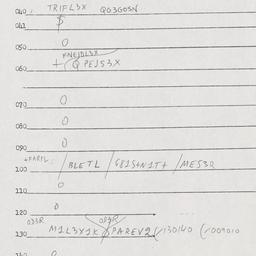 040 TRIFL3X QO3GOSN
041 $
050 0
KNEJDL3X
060 + QPEJS3X
0
070
080 0
090 0
+PARFL
100 /BLETL /G81S4N1T+ /MES3Q
110 0
120 0
OJ3R OJ3R
130 M1L3Y1K PAREV2 (/130140 (/009010
0